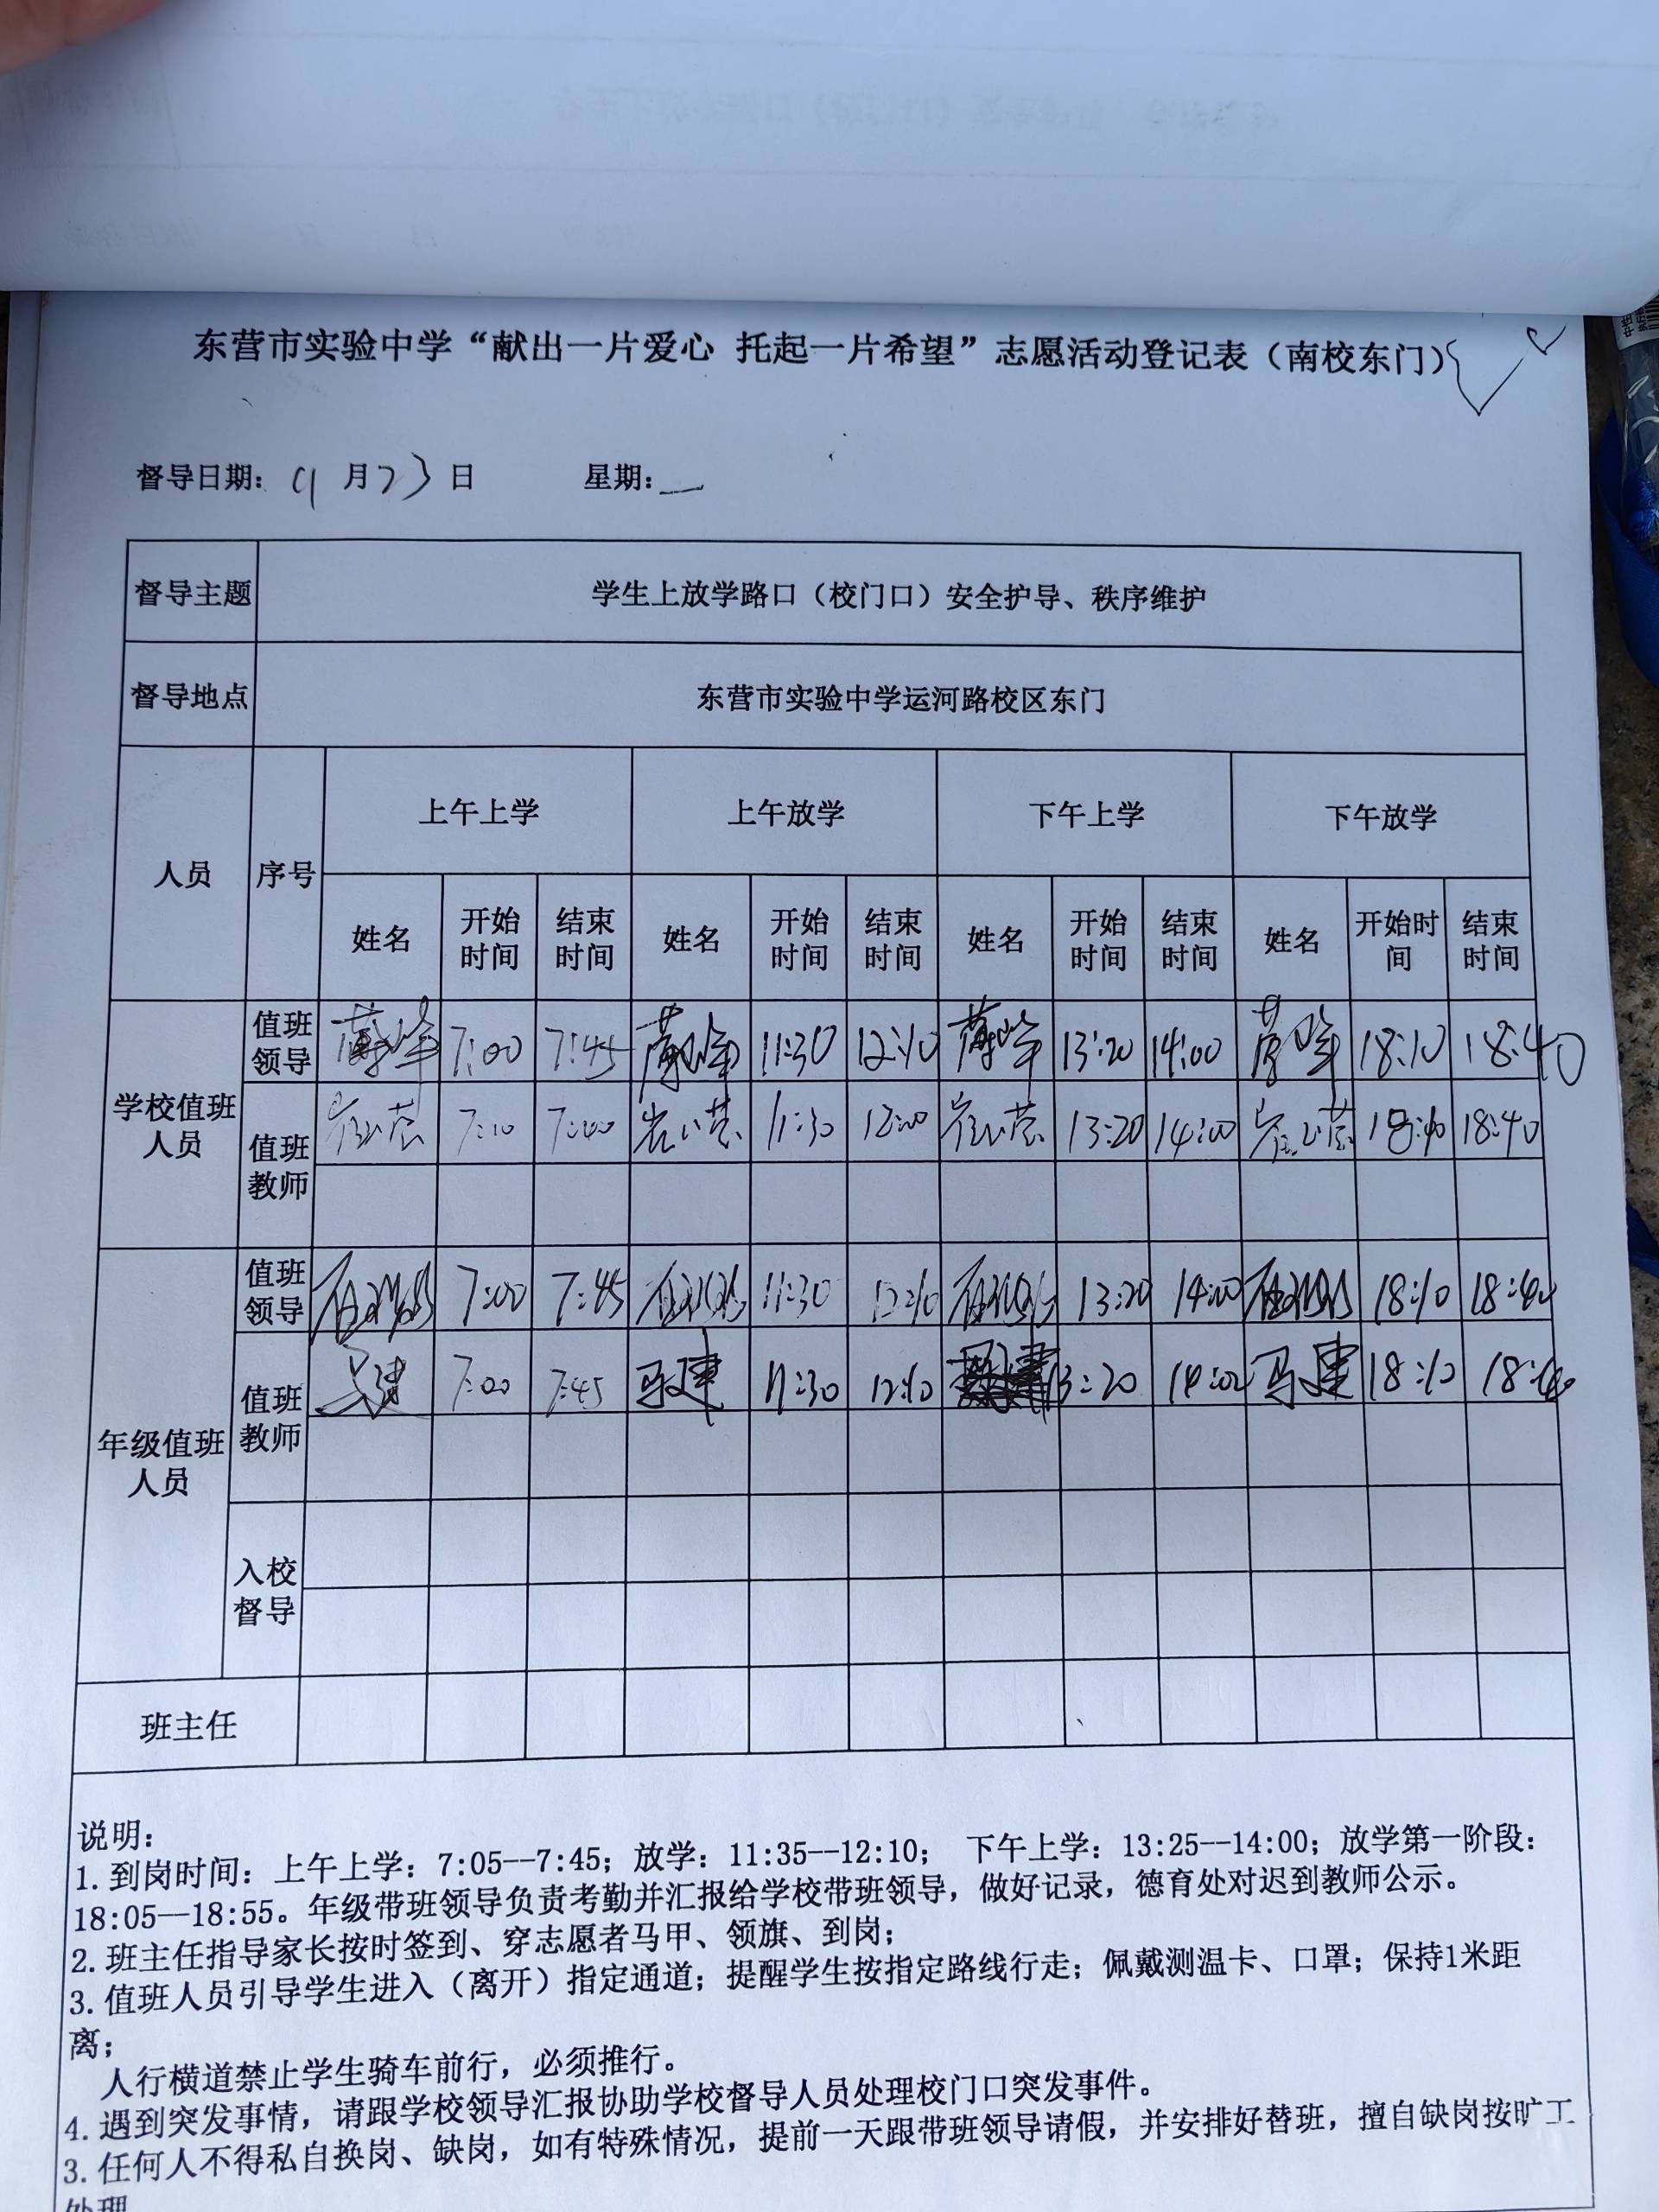 东营市实验中学“献出一片爱心 托起一片希望”志愿活动登记表（南校东门）
督导日期：9月23日 星期：一
督导主题 学生上放学路口（校门口）安全护导、秩序维护
督导地点 东营市实验中学运河路校区东门
人员 序号 上午上学 上午放学 下午上学 下午放学
姓名 开始时间 结束时间 姓名 开始时间 结束时间 姓名 开始时间 结束时间 姓名 开始时间 结束时间
学校值班人员 值班领导 7:00 7:45 11:30 12:10 13:20 14:00 18:10 18:40
值班教师 7:10 7:40 11:30 12:00 13:20 14:00 18:40
年级值班人员 值班领导 7:00 7:45 11:30 12:10 13:20 14:00 18:10 18:40
值班教师 马建 7:00 7:45 马建 11:30 12:10 13:20 14:00 马建 18:10 18:40
入校督导
班主任
说明：
1.到岗时间：上午上学：7:05--7:45；放学：11:35--12:10； 下午上学：13:25--14:00；放学第一阶段：
18:05--18:55。年级带班领导负责考勤并汇报给学校带班领导，做好记录，德育处对迟到教师公示。
2.班主任指导家长按时签到、穿志愿者马甲、领旗、到岗；
3.值班人员引导学生进入（离开）指定通道；提醒学生按指定路线行走；佩戴测温卡、口罩；保持1米距
离；
人行横道禁止学生骑车前行，必须推行。
4.遇到突发事情，请跟学校领导汇报协助学校督导人员处理校门口突发事件。
3.任何人不得私自换岗、缺岗，如有特殊情况，提前一天跟带班领导请假，并安排好替班，擅自缺岗按旷工
处理